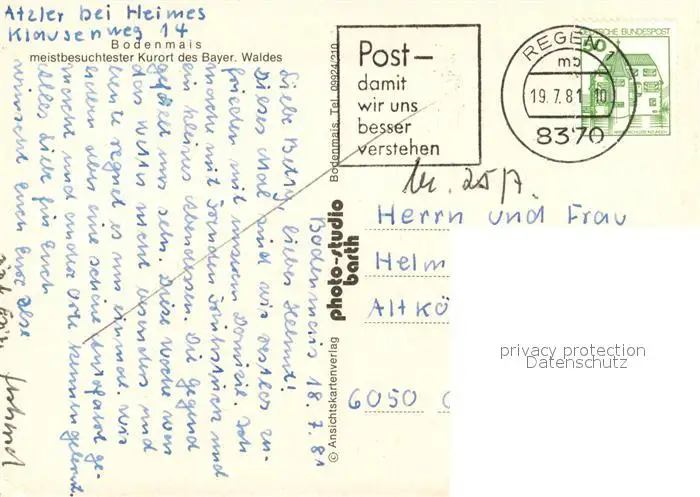 Atzler bei Heimes
Klausenweg 14
Bodenmais
meistbesuchtester Kurort des Bayer. Waldes
Post-
damit
wir uns
besser
verstehen
REGEN 1
mb
19.7.81 10
8370
DEUTSCHE BUNDESPOST
Bodenmais, Tel. 09924/210
photo-studio
barth
© Ansichtskartenverlag
25/7.
Herrn und Frau
Helm
Altkö
6050
privacy protection
Datenschutz
Bodenmais 18.7.81
Liebe Betty, lieber Helmut!
Dieses Mal sind wir restlos zu-
frieden mit unserem Domizil. Wir
wohnen mit Frühstück und
ein kleines Abendessen. Die Gegend
gefällt uns sehr. Diese Woche war
das Wetter nicht besonders und
heute regnet es uns einmal. Wir
haben aber eine schöne ge-
macht und andere Orte kennengelernt.
Alles Liebe für Euch
wünscht Euch Eure Ilse